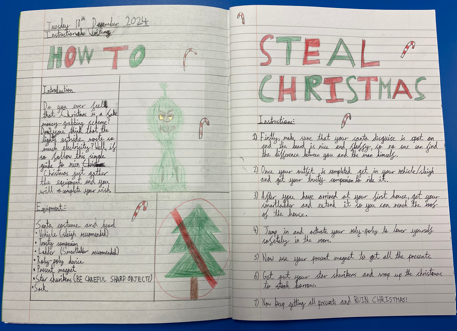 Tuesday 17th December 2024
Instructional Writing
HOW TO
Introduction
Do you ever feel
that Christmas is a fake
money-getting scheme?
Don't you think that the
lights outside waste so
much electricity? Well, if
so follow this simple
guide to ruin
Christmas. Just gather
the equipment and you
will complete your wish
Equipment:
Santa costume and beard
Vehicle (sleigh recommended)
• Trusty companion
• Ladder (Smartladder recommended)
• Roly-poly device
• Present magnet
• Star shurikens (BE CAREFUL SHARP OBJECT!)
• Sack
STEAL
CHRISTMAS
Instructions:
1) Firstly, make sure that your santa disguise is spot on
and the beard is nice and fluffy, so no one can find
the difference between you and the man himself.
2) Once your outfit is completed, get in your vehicle/sleigh
and get your trusty companion to ride it.
3) After you have arrived at your first house, get your
smartladder and extend it so you can reach the roof
of the house.
4) Jump in and activate your roly-poly to lower yourself
safely in the room.
5) Now use your present magnet to get all the presents
6) Last, get your star shurikens and snap up the christmas
to steak
7) Now keep getting all presents and RUIN CHRISTMAS!